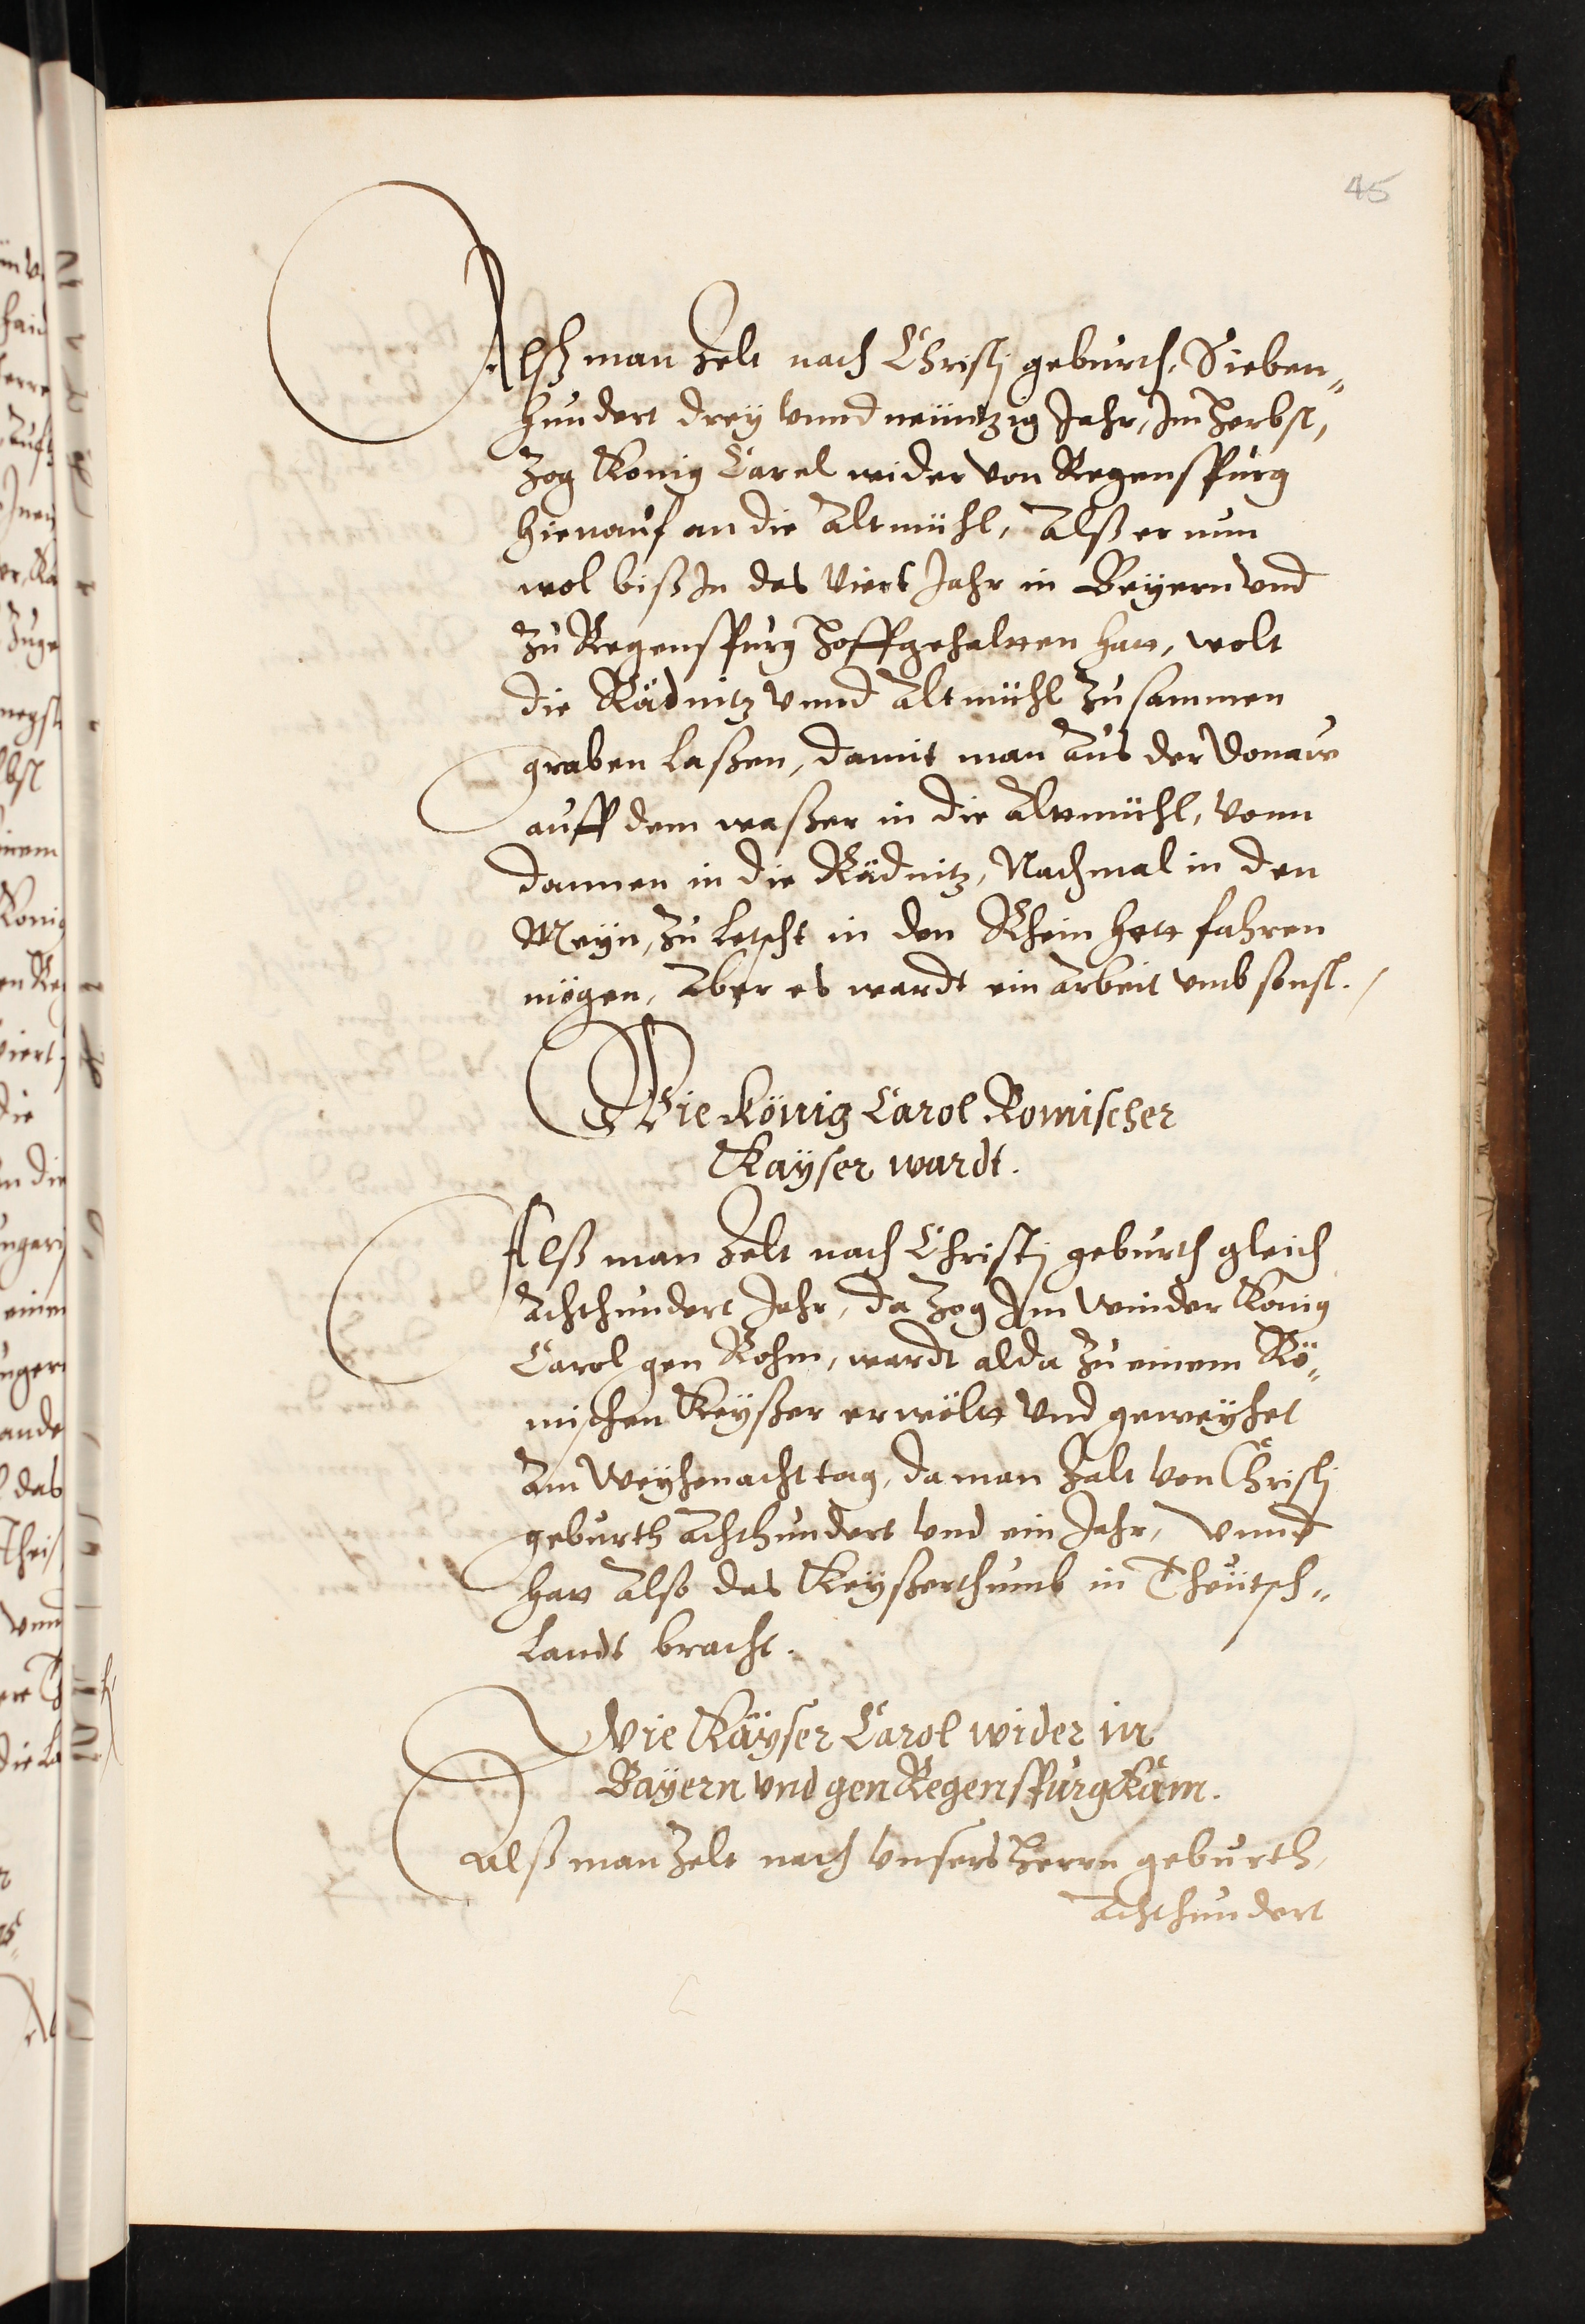 45
Alsz man Zelt nach Christj geburth, Sieben„
hundert drey vnnd neüntzig Jahr, Im Herbst,
Zog Konig Carel wider von Regenspurg
hienauf an die Altmühl, Alß er nun
wol biß In das Viert Jahr in Beyern vnd
Zu Regenspurg Hoffgehaltten hatt, wolt
die Rädnitz vnnd Altmühl Zusammen
graben laßen, damit man Aus der Donaw
auff dem waßer in die Altmühl, vonn
dannen in die Rädnitz, Nachmal in den
Meyn, Zu letscht in den Rhein hett fahren
mögen, Aber es wardt ein Arbeit vmb sonst.
Wie König Carol Romischer
Kayser wardt.
Alß man Zelt nach Christj geburth gleich
Achthundert Jahr, da Zog Im Winder König
Carol gen Rohm, wardt alda Zu einem Rö„
mischen Keyßer erwöltt Vnd geweyhet
Am Weyhenacht tag, da man Zalt von Christj
geburth Achthundert vnd ein Jahr, Vnnd
hatt Also das Keyßerthumb in Theütsch„
landt bracht.
Wie Kayser Carol wider in
Bayern vnd gen Regenspurg Kam.
Alß man Zelt nach vnsers Herrn geburth,
Achthundert